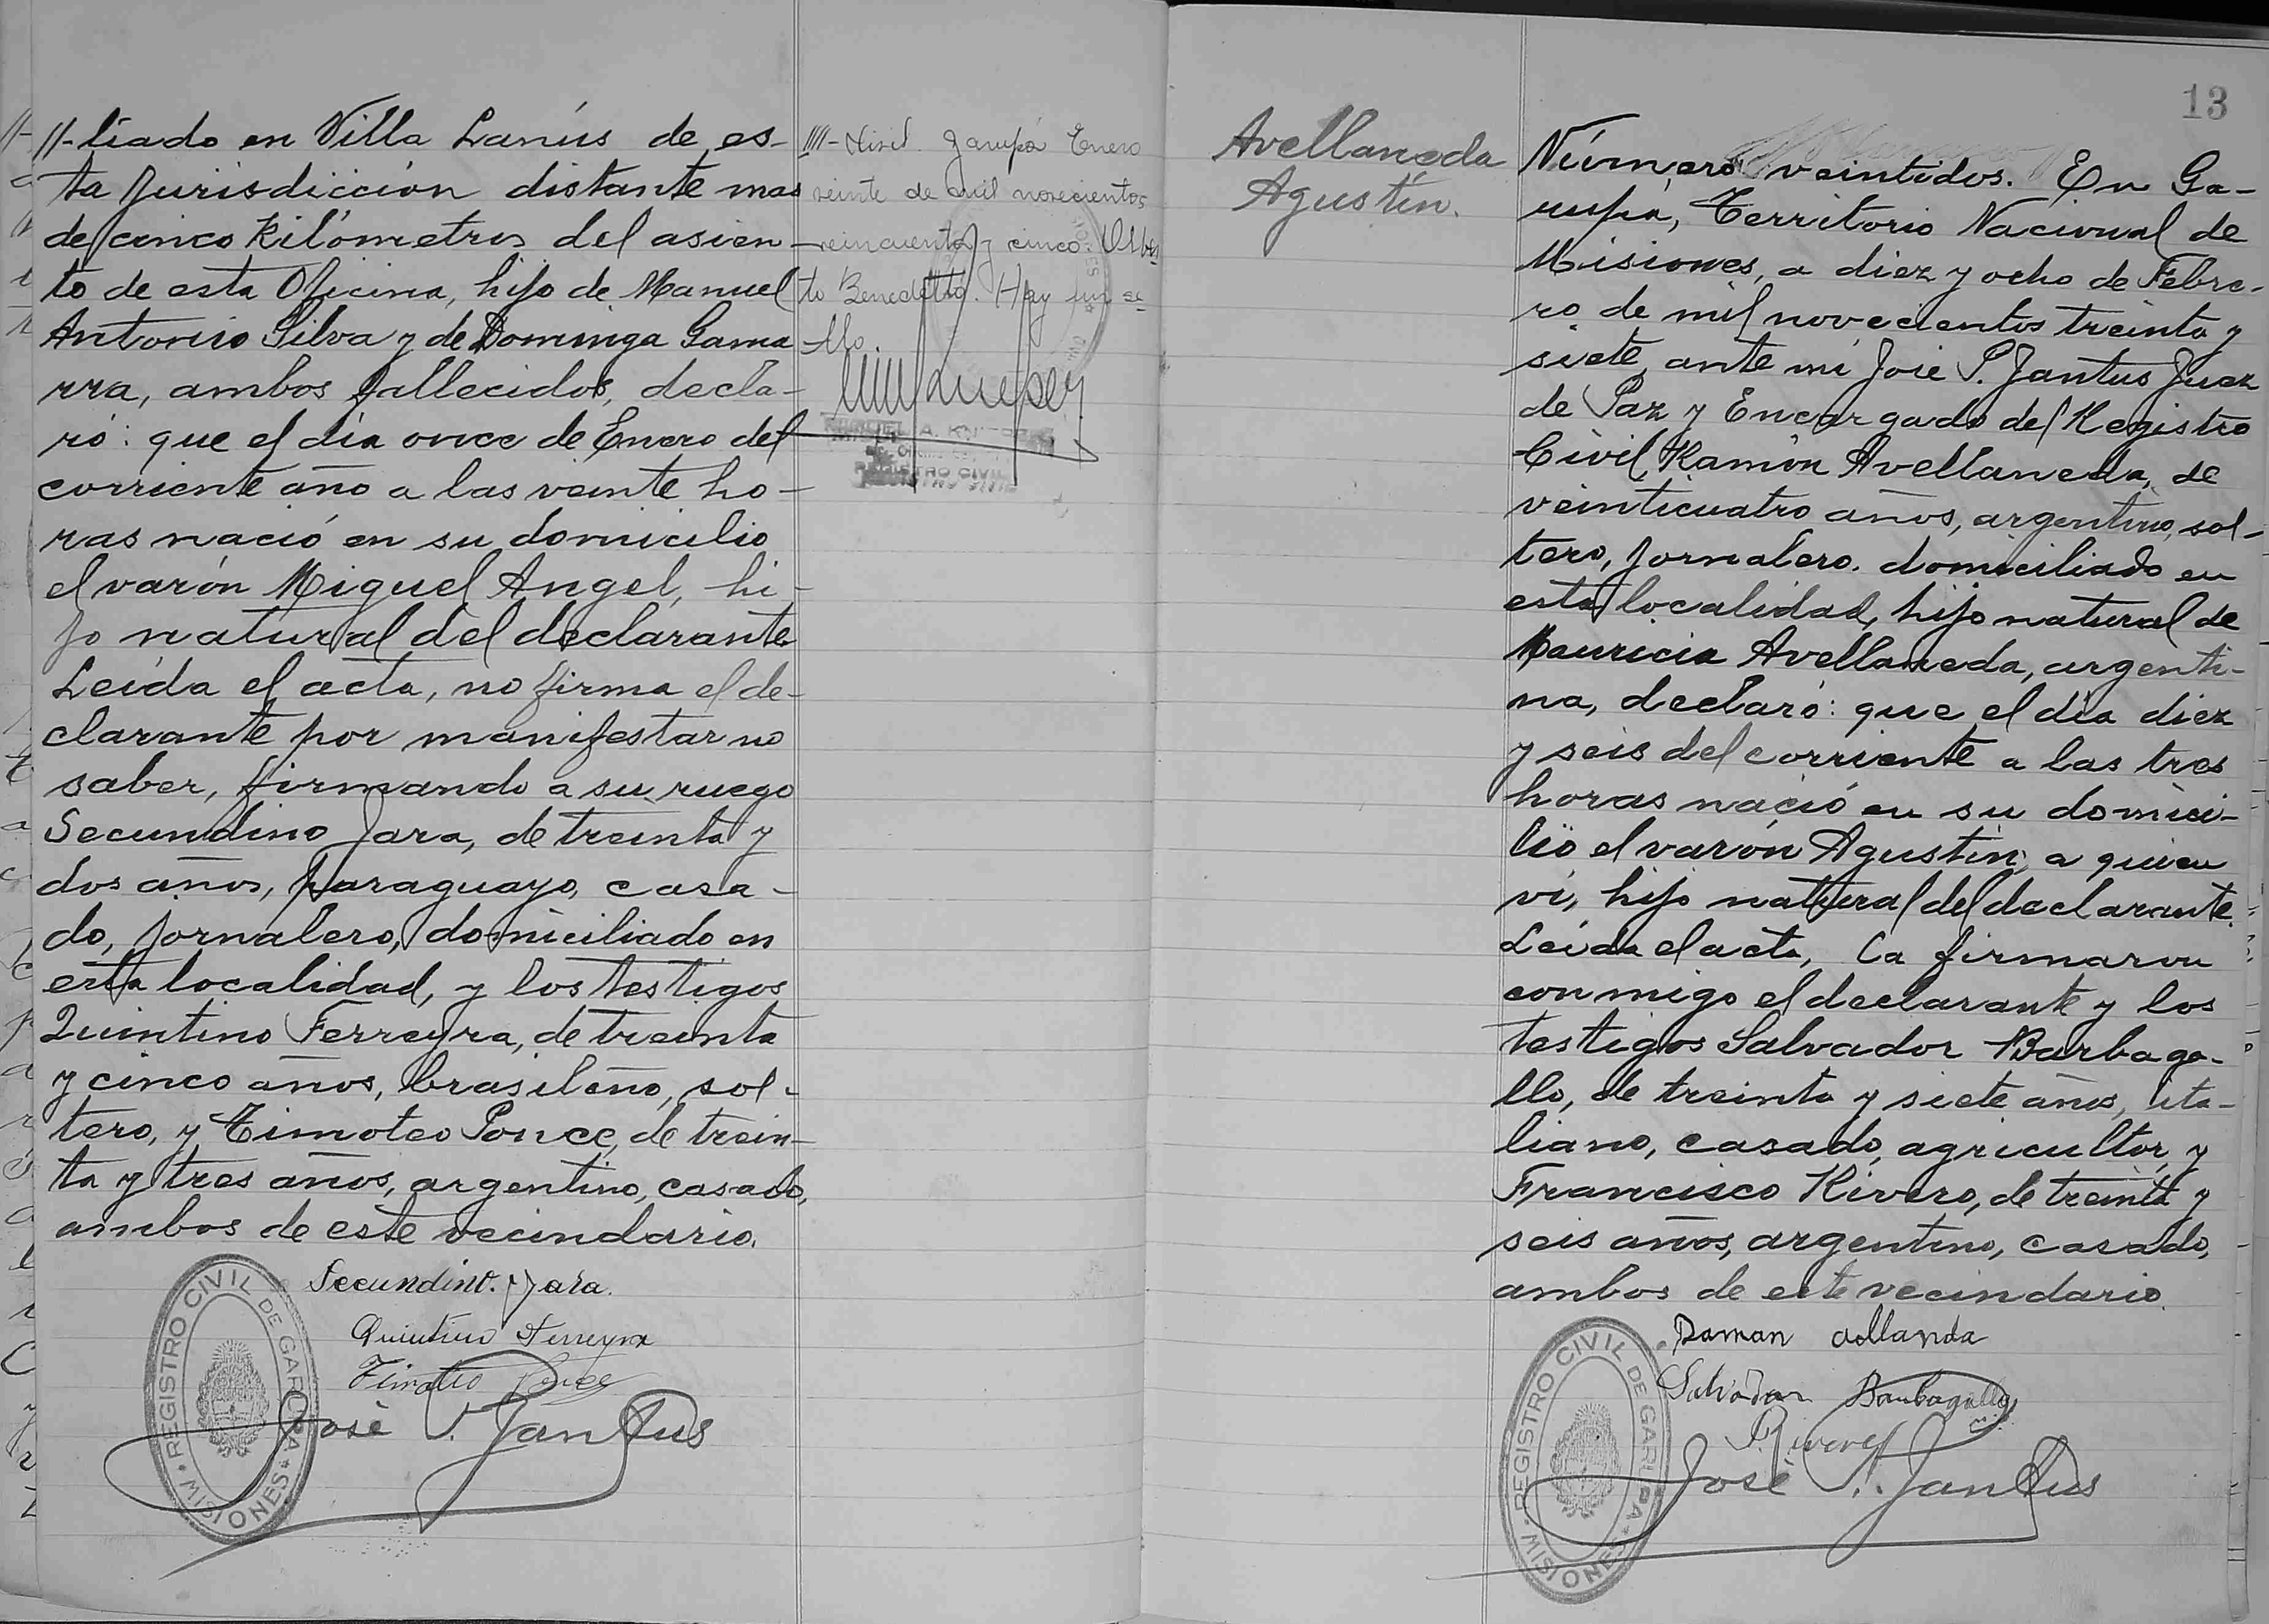 //-liado en Villa Lanús de es-
ta Jurisdicción distante mas
de cinco Kilómetros del asien-
to de esta Oficina, hijo de Manuel
Antonio Silva y de Dominga Gama-
rra, ambos fallecidos, decla-
ró: que el día once de Enero del
corriente año a las veinte ho-
ras nació en su domicilio
el varón Miguel Angel, hi-
jo natural del declarante
Leída el acta, no firma el de-
clarante por manifestar no
saber, firmando a su ruego
Secundino Jara, de treinta y
dos años, paraguayo, casa-
do, jornalero, domiciliado en
esta localidad, y los testigos
Quintino Ferreyra, de treinta
y cinco años, brasileño, sol-
tero, y Timoteo Ponce, de trein-
ta y tres años, argentino, casado,
ambos de este vecindario.
Secundino. Jara.
Quintino Ferreyra
Timoteo Ponce
José P. Jantus
REGISTRO CIVIL DE GARUPA
MISIONES
////- Civil. Garupá Enero
veinte de mil novecientos
cincuenta y cinco
to Benedetto. Hay un se-
llo.
REGISTRO CIVIL
13
Avellaneda
Agustín.
Número veintidos. En Ga-
rupá, Territorio Nacional de
Misiones, a diez y ocho de Febre-
ro de mil novecientos treinta y
siete, ante mi José P. Jantus Juez
de Paz y Encargado del Registro
Civil, Ramón Avellaneda, de
veinticuatro años, argentino, sol-
tero, jornalero. domiciliado en
esta localidad, hijo natural de
Mauricia Avellaneda, argenti-
na, declaró: que el día diez
y seis del corriente a las tres
horas nació en su domici-
lio el varón Agustín, a quien
vi, hijo natural del declarante.
Leída el acta, la firmaron
conmigo el declarante y los
testigos Salvador Barbaga-
llo, de treinta y siete años, ita-
liano, casado, agricultor, y
Francisco Rivero, de treinta y
seis años, argentino, casado,
ambos de este vecindario.
Raman aellanda
Salvador Barbagallo
José P. Jantus
REGISTRO CIVIL DE GARUPA
MISIONES